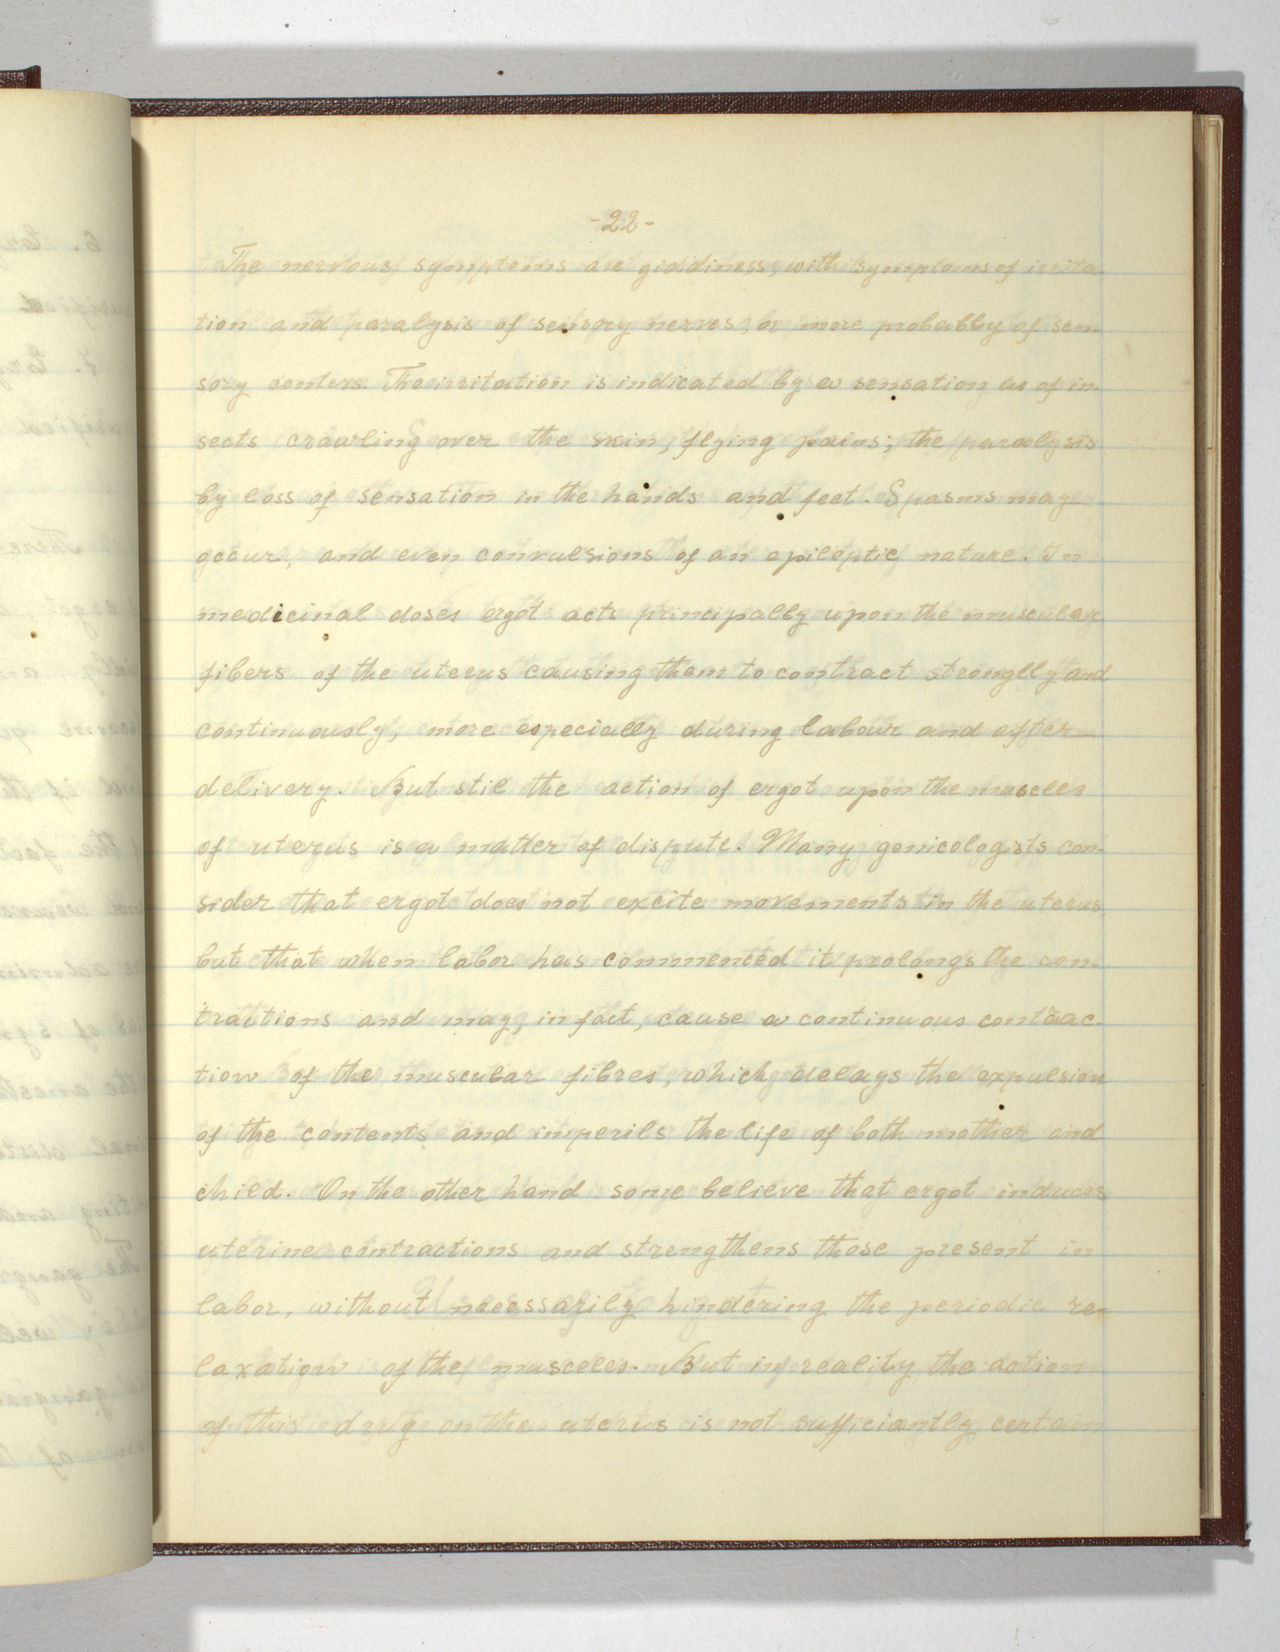 -22-
The nervous symptoms are giddiness, with symptoms of irrita
tion and paralysis of sensory nerves, or more probably of sen-
sory centers. The irritation is indicated by a sensation as of in-
sects crawling over the skin, flying pains; the paralysis
by loss of sensation in the hands and feet. Spasms may
occur, and even convulsions of an epileptic nature. In
medicinal doses ergot acts principally upon the muscular
fibers of the uterus causing them to contract stronglly and
continuously, more especially during labour and after
delivery. But stil the action of ergot upon the muscles
of uterus is a matter of dispute. Many genicologists con-
sider that ergot does not excite movements in the uterus,
but that when labor has commenced it prolongs the con-
tractions and may, in fact, cause a continuous contrac-
tion of the muscular fibres, which delays the expulsion
of the contents and imperils the life of both mother and
child. On the other hand some believe that ergot induces
uterine contractions and strengthens those present in
labor, without necessarily hindering the periodic re-
laxation of the musceles. But in reality the action
of this drug on the uterus is not sufficiantly certain